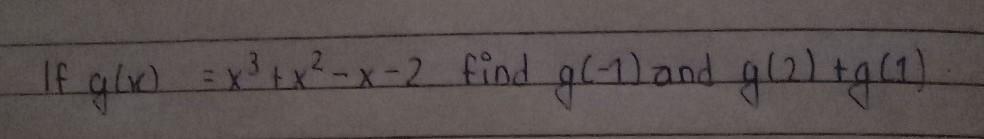 If g(x) = x³+x²-x-2 find g(-1) and g(2)+g(1).